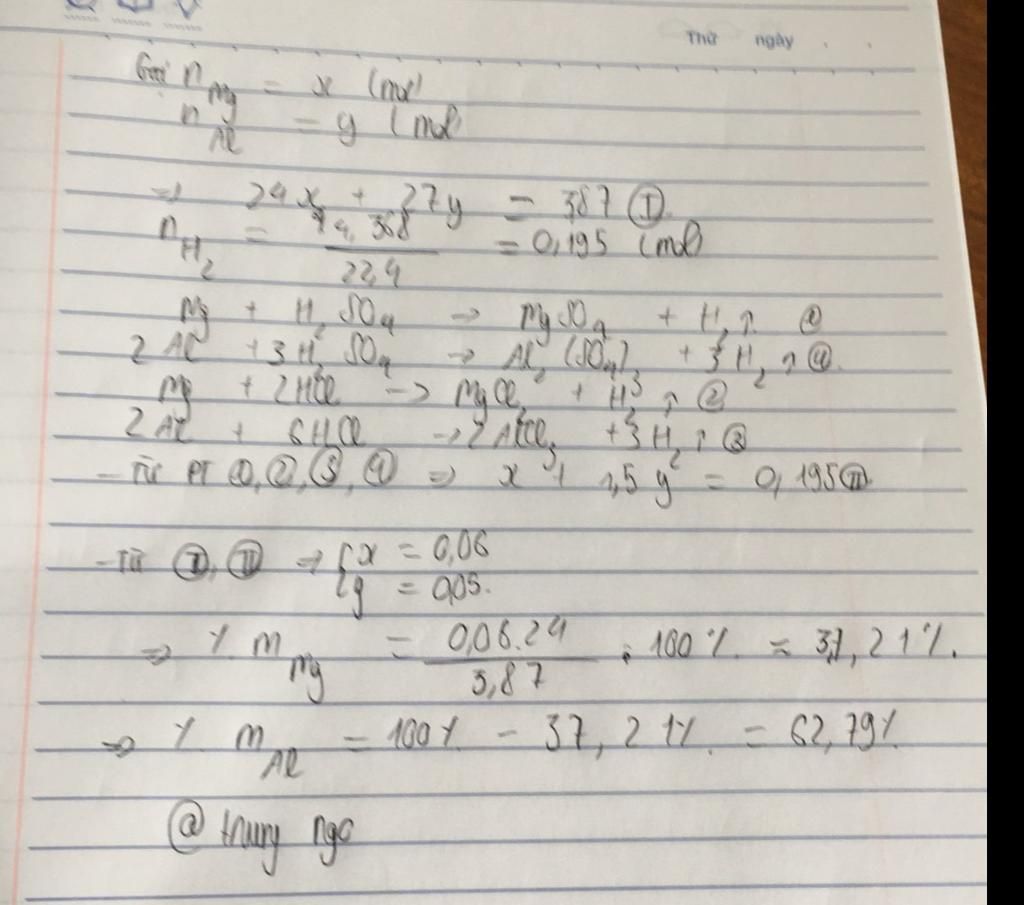 Thứ ngày
Gọi n Mg = x (mol)
n Al = y (mol)
⇒ 24x + 27y = 3,87 Ⓘ
n H₂ = 4,368 / 22,4 = 0,195 (mol)
Mg + H₂SO₄ → MgSO₄ + H₂↑ ①
2Al + 3H₂SO₄ → Al₂(SO₄)₃ + 3H₂↑ ④
Mg + 2HCl → MgCl₂ + H₂↑ ②
2Al + 6HCl → 2AlCl₃ + 3H₂↑ ③
- Từ PT ①, ②, ③, ④ ⇒ x + 1,5y = 0,195 Ⓘⓘ
- Từ Ⓘ, Ⓘⓘ ⇒ { x = 0,06
y = 0,05.
⇒ % m Mg = 0,06.24 / 3,87 . 100% = 37,21%.
⇒ % m Al = 100% - 37,21% = 62,79%.
@ trung ngo